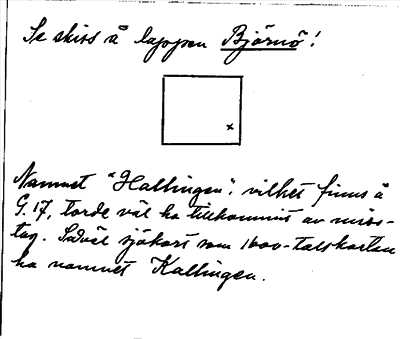 Se skiss å lappen Björnö!
x
Namnet "Hallingen", vilket finns å
G. 17, torde väl ha tillkommit av miss-
tag. Såväl sjökort som 1600-talskartan
ha namnet Kallingen.